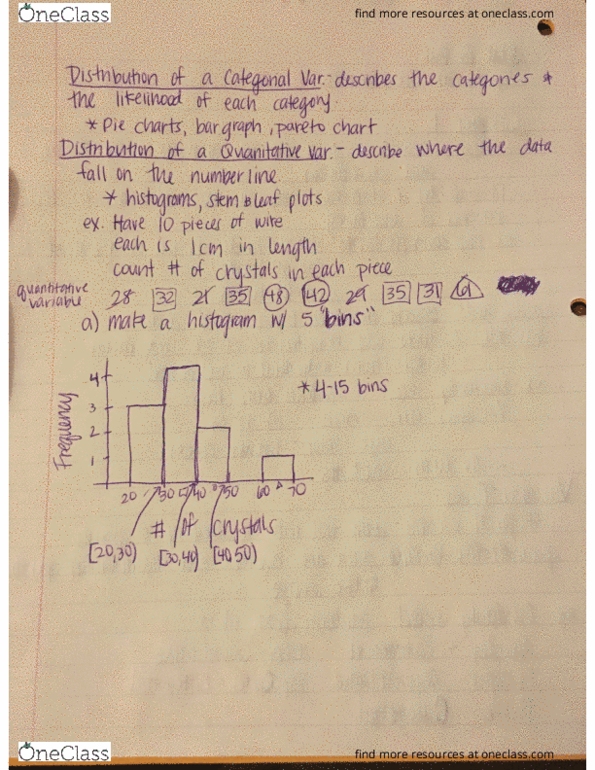 OneClass
find more resources at oneclass.com
Distribution of a Categorical Var.-describes the categories &
the likelihood of each category.
* Pie charts, bar graph, pareto chart
Distribution of a Quanitative Var.- describe where the data
fall on the number line.
* histograms, stem & leaf plots
ex. Have 10 pieces of wire
each is 1cm in length
count # of crystals in each piece
quantitative
variable
28 32 21 35 48 42 29 35 31 61
a) make a histogram w/ 5 "bins"
* 4-15 bins
Frequency
4
3
2
1
20 30 40 50 60 70
# of crystals
[20,30) [30,40) [40,50)
OneClass
find more resources at oneclass.com